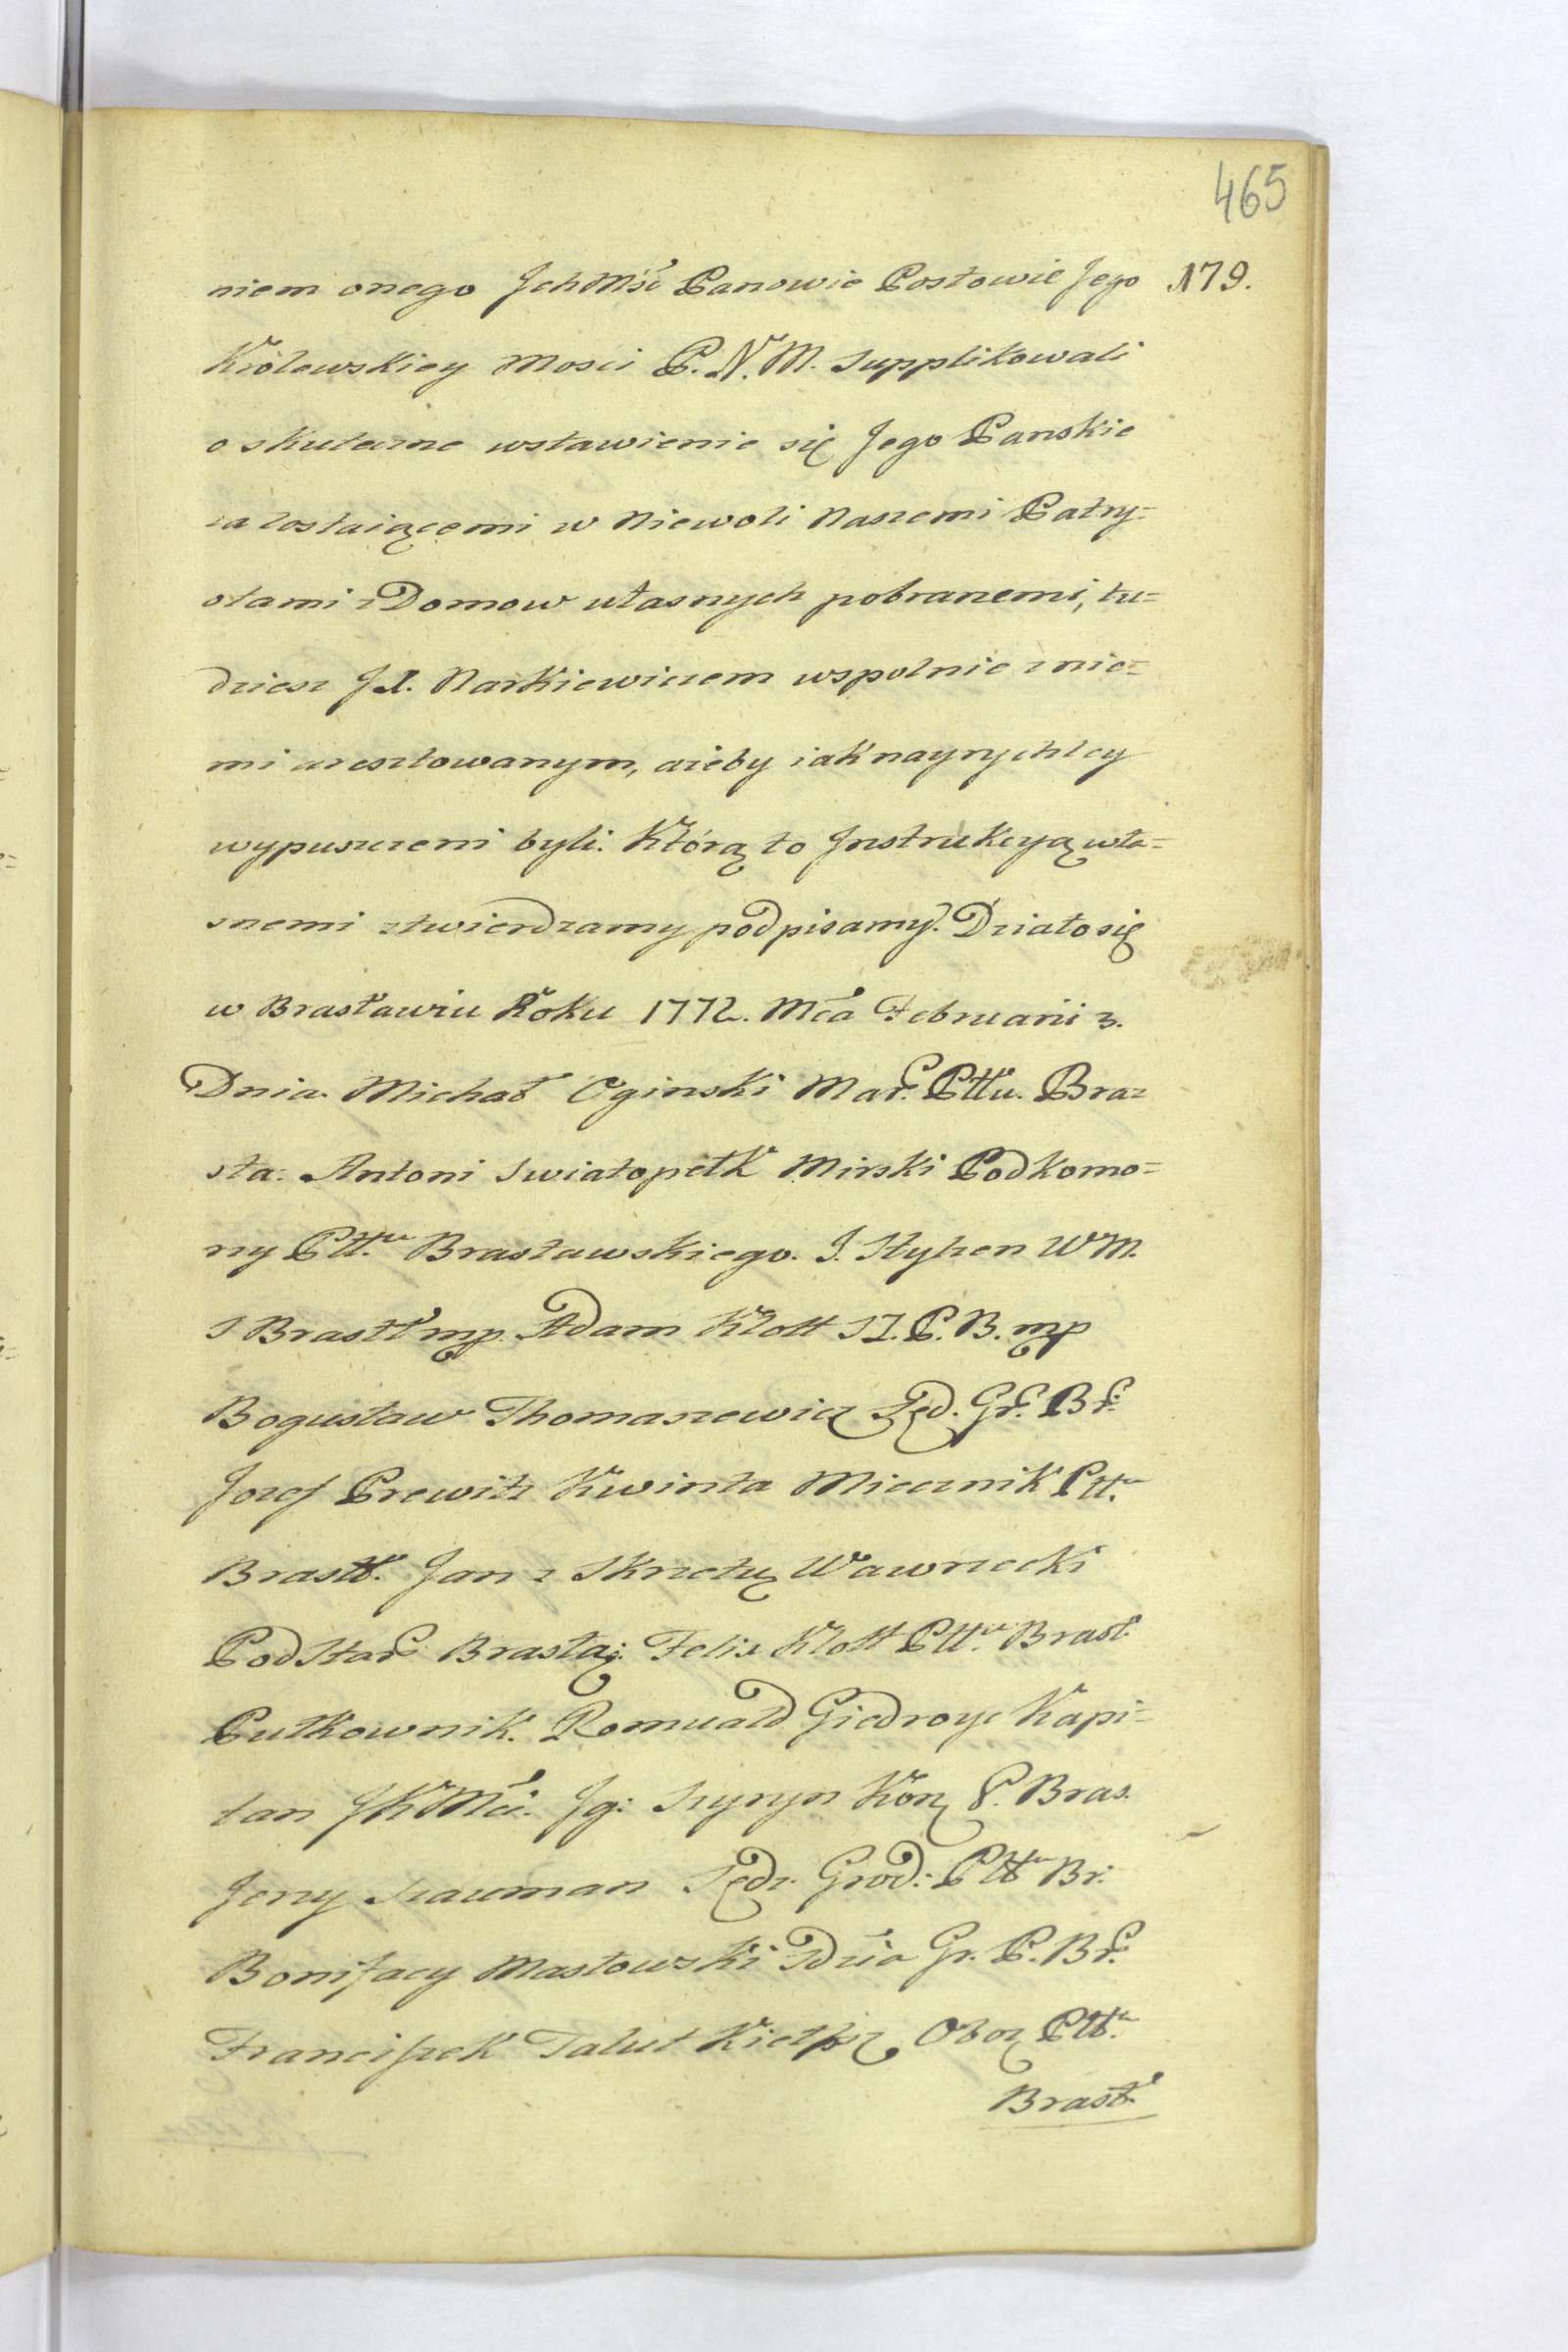 465
niem onego JchMść Panowie Posłowie Jego 179.
Królewskiey Mosci P. N. M. supplikowali
o skuteczne wstawienie się Jego Panskie
za zostaiącemi w Niewoli Naszemi Patry=
otami z Domow własnych pobranemi, tu=
dziesz JX. Narkiewiczem wspolnie z nie=
mi aresztowanym, ażeby iak nayrychley
wypuszczeni byli. Którą to Jnstrukcyą wła=
snemi ztwierdzamy podpisamy. Działo się
w Brasławiu Roku 1772. Mca Februarii 3.
Dnia. Michał Oginski Mar. Pttu. Bra=
sła: Antoni Swiatopełk Mirski Podkomo=
ry Pttu Brasławskiego. J. Hylzen WM.
S Brasł mp. Adam Klott S Z. P. B. mp
Bogusław Thomaszewicz Sęd. Gr. Br.
Jozef Prewitz Kwinta Miecznik Pttu
Brasł. Jan z Skrzetuz Wawrzecki
PodStar Brasła: Felix Klott Pttu Brasł
Pułkownik. Romuald Giedroyc Kapi=
tan JKMci. Jg: Szyryn Kon P. Bras.
Jerzy Szauman Sędz. Grod: Pttu Br:
Bonifacy Masłowski Sdźia Gr. P. Br.
Franciszek Talut Kiełpsz Oboz Pttu
Brasł.